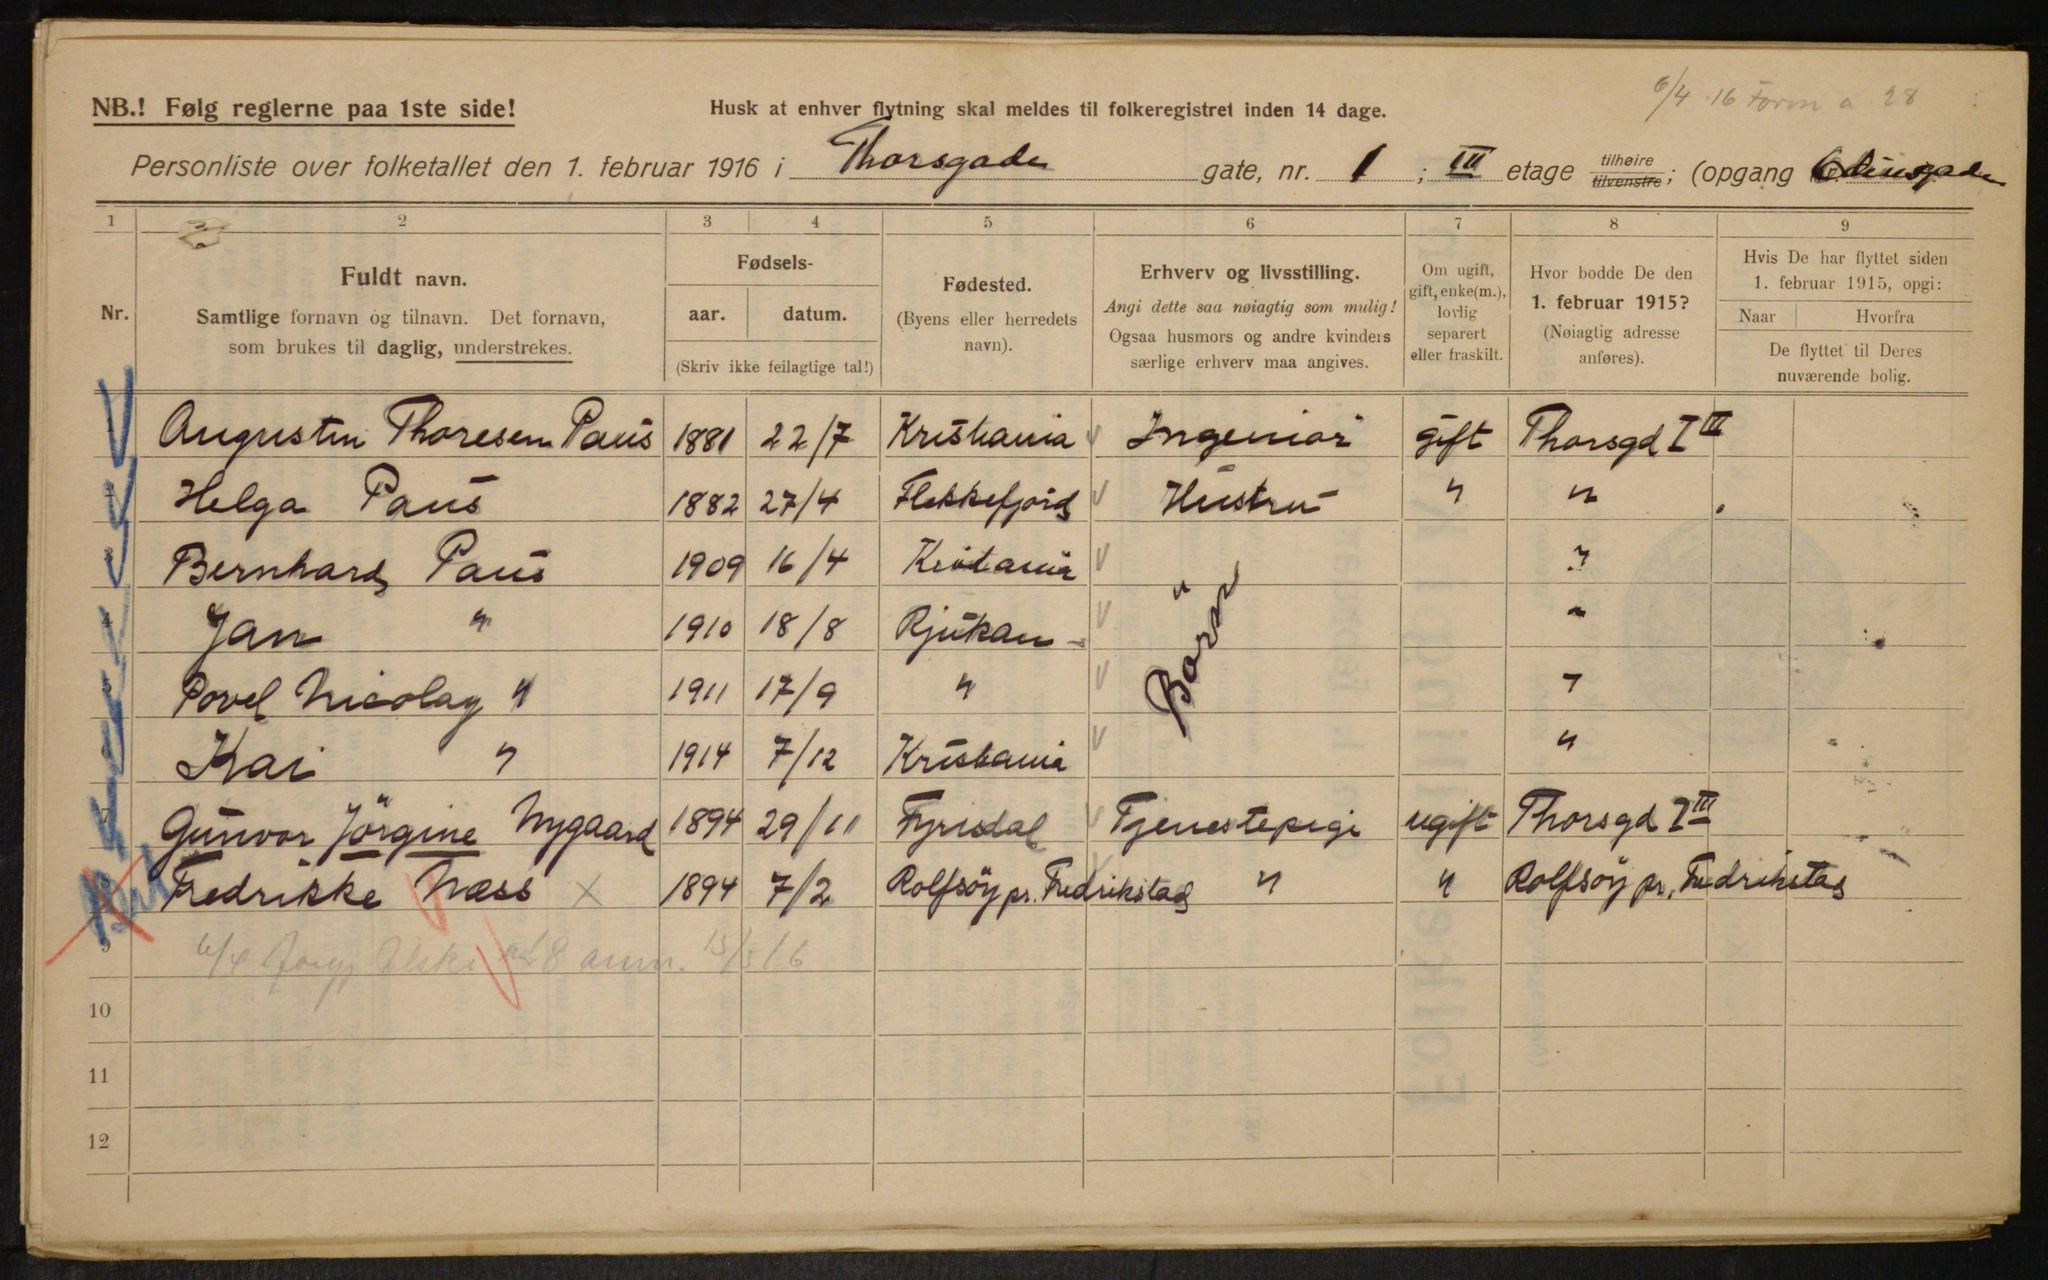 6/4 16 Form a 28
NB.! Følg reglerne paa 1ste side!
Husk at enhver flytning skal meldes til folkeregistret inden 14 dage.
Personliste over folketallet den 1. februar 1916 i Thorsgade gate, nr. 1; III etage tilhøire tilvenstre; (opgang Odinsgade
1 2 3 4 5 6 7 8 9
Nr.
Fuldt navn.
Samtlige fornavn og tilnavn. Det fornavn,
som brukes til daglig, understrekes.
Fødsels-
aar. datum.
(Skriv ikke feilagtige tal!)
Fødested.
(Byens eller herredets
navn).
Erhverv og livsstilling.
Angi dette saa nøiagtig som mulig!
Ogsaa husmors og andre kvinders
særlige erhverv maa angives.
Om ugift,
gift, enke(m.),
lovlig
separert
eller fraskilt.
Hvor bodde De den
1. februar 1915?
(Nøiagtig adresse
anføres).
Hvis De har flyttet siden
1. februar 1915, opgi:
Naar Hvorfra
De flyttet til Deres
nuværende bolig.
Augustin Thoresen Paus 1881 22/7 Kristiania Ingeniör gift Thorsgd I III
Helga Paus 1882 27/4 Flekkefjord Hustru " "
Bernhard Paus 1909 16/4 Kristiania "
Jan " 1910 18/8 Rjukan "
Börn
Povel Nicolay " 1911 17/9 " "
Kai " 1914 7/12 Kristiania "
Gunvor Jörgine Nygaard 1894 29/11 Fyrisdal Tjenestepige ugift Thorsgd I III
Fredrikke Næss X 1894 7/2 Rolfsöy pr. Fredrikstad " " Rolfsöy pr. Fredrikstad
9
10
11
12